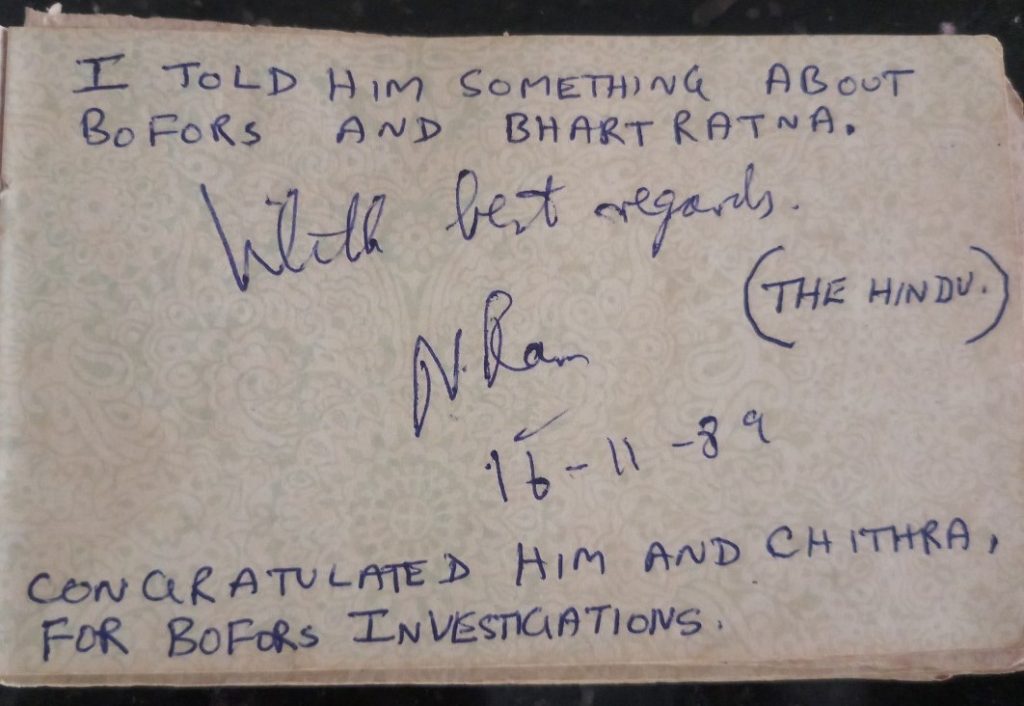 I TOLD HIM SOMETHING ABOUT
BOFORS AND BHART RATNA.
With best regards.
(THE HINDU.)
N. Ram
16-11-89
CONGRATULATED HIM AND CHITHRA,
FOR BOFORS INVESTIGATIONS.